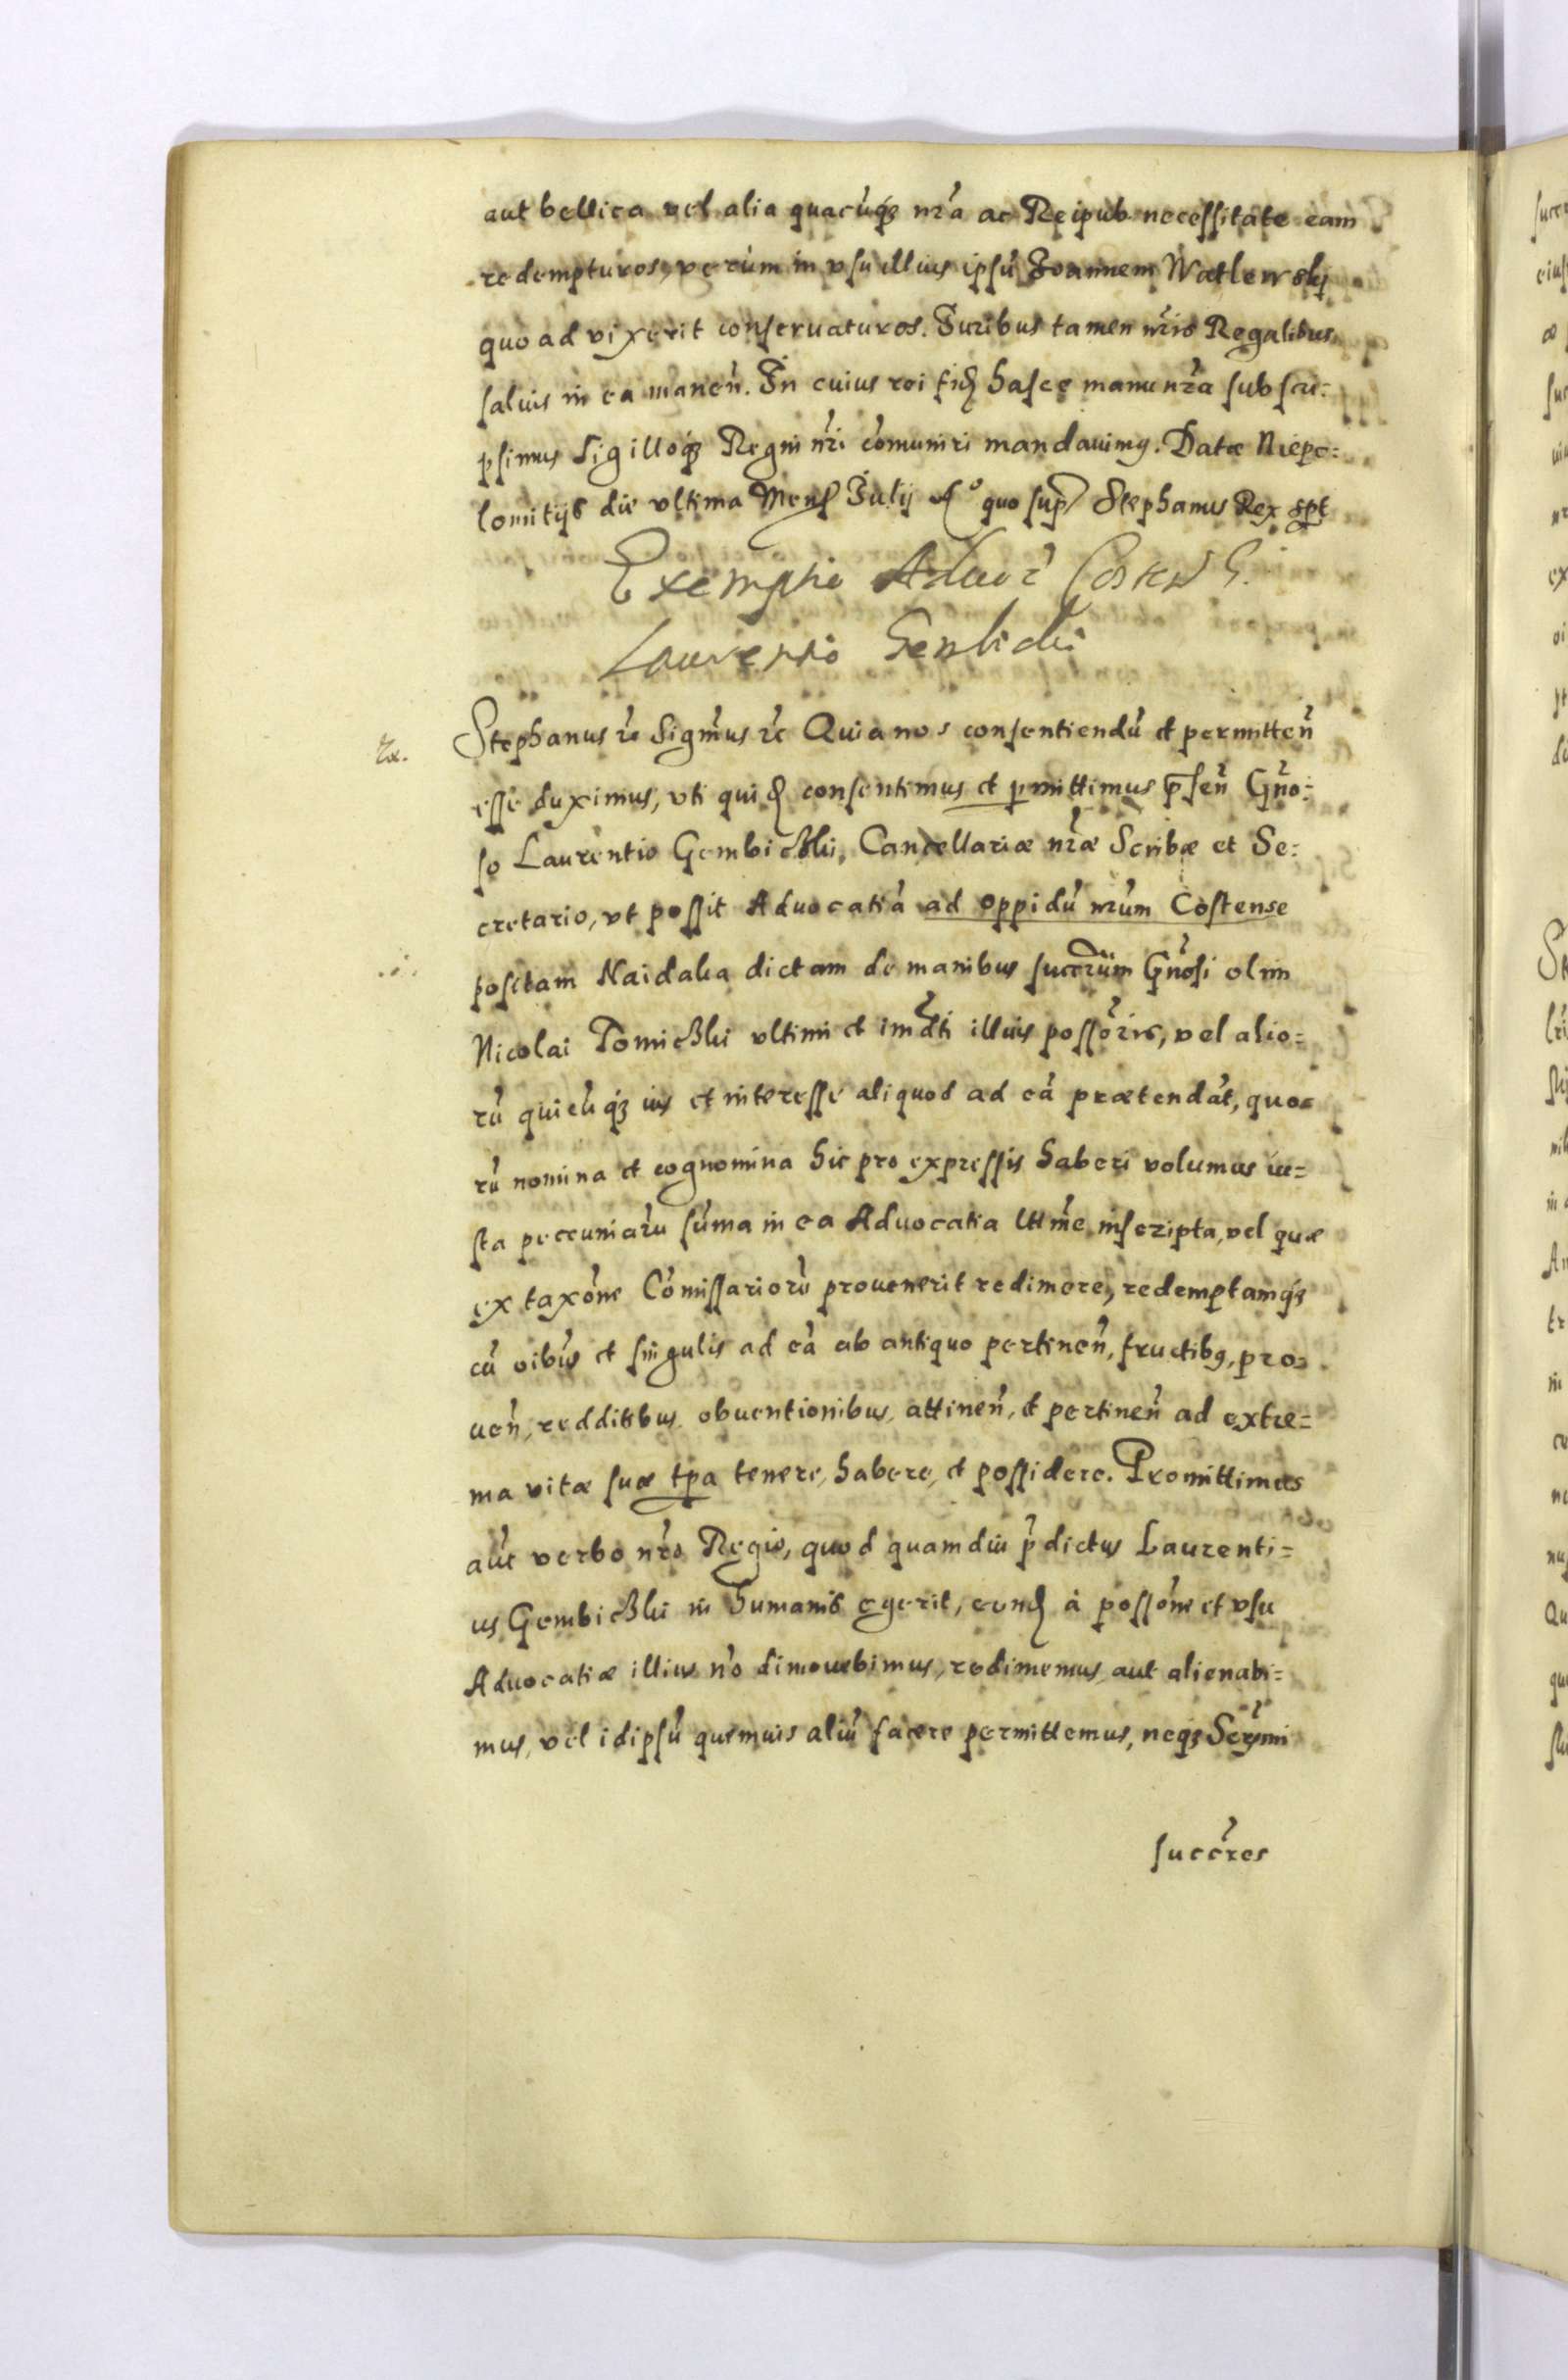 aut bellica vel alia quacúq́ꝫ nr̃a ac Reipub. necessitate eam
redempturos, verùm in vsu illius ipsú Joannem Watlewskj
quoad vixerit conseruaturos. Juribus tamen nr̃is Regalibus
saluis in ea maneñ. In cuius rei fid hasce manu nr̃a subscri=
psimus Sigilloq́ꝫ Regni nr̃i cómuniri mandauimꝰ. Datæ Niepo=
lomitijs die vltima Mens Julij Aº quo sup Stephanus Rex sspt
Exemptio Aduoc̃ Costeñ G.
Laurentio Gembicki
Stephanus rc̃ Sigm̃us rc̃ Quia nos consentiendú et permitteñ
esse duximus, vti quid consentimus et pmittimus p̃señ Gño=
so Laurentio Gembiczki, Cancellariæ nr̃æ Scribæ et Se=
cretario, vt possit Aduocatiá ad oppidú nr̃um Costense
positam Naidalia dictam de manibus succr̃um Gñosi olim
Nicolai Tomiczki vltimi et imd̃ti illius possor̃is, vel alio=
rú quicúq́ꝫ ius et interesse aliquod ad eá prætendát, quo=
rú nomina et cognomina hic pro expressis haberi volumus iu=
sta peccuniarú súma in ea Aduocatia ltt̃me inscripta, vel quæ
ex taxõne Cómissariorú prouenerit redimere, redemptamq́ꝫ
cú oib́us et singulis ad eá ab antiquo pertineñ, fructibꝰ, pro=
ueñ, redditibus, obuentionibus, attineñ, et pertineñ ad extre=
ma vitæ suæ tpa tenere, habere, et possidere. Promittimus
aút verbo nr̃o Regio, quod quamdiu p̃dictus Laurenti=
us Gembiczki in humanis egerit, eund à possõne et vsu
Aduocatiæ illius nó dimouebimus, redimemus, aut alienabi=
mus, vel idipsú quemuis aliú facere permittemus, neqꝫ Ser̃mi
succr̃es